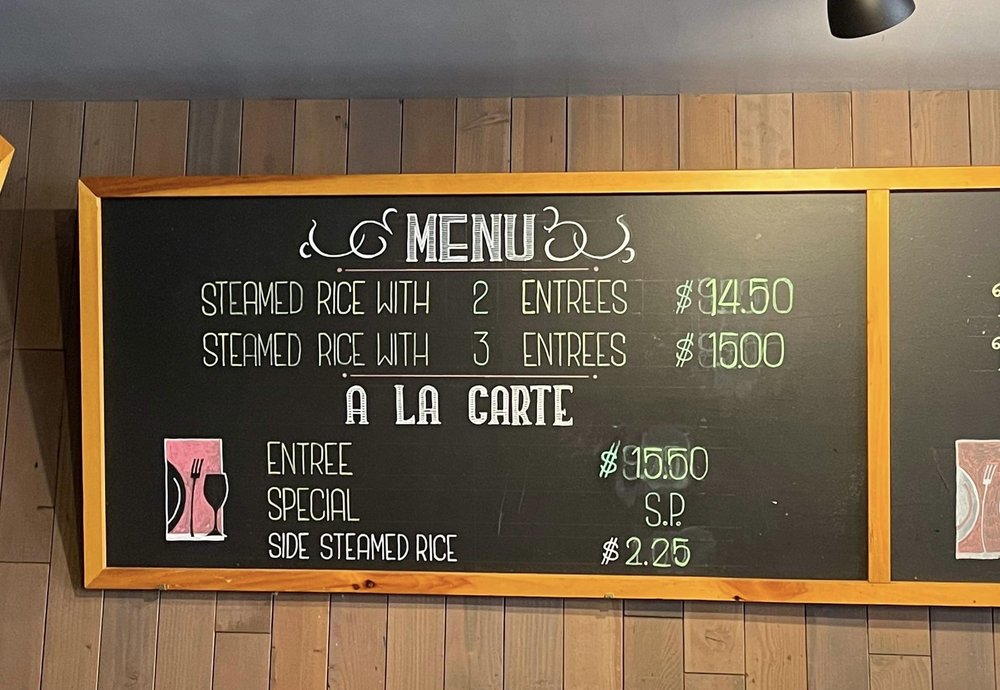 MENU
STEAMED RICE WITH 2 ENTREES $14.50
STEAMED RICE WITH 3 ENTREES $15.00
A LA CARTE
ENTREE $15.50
SPECIAL S.P.
SIDE STEAMED RICE $2.25